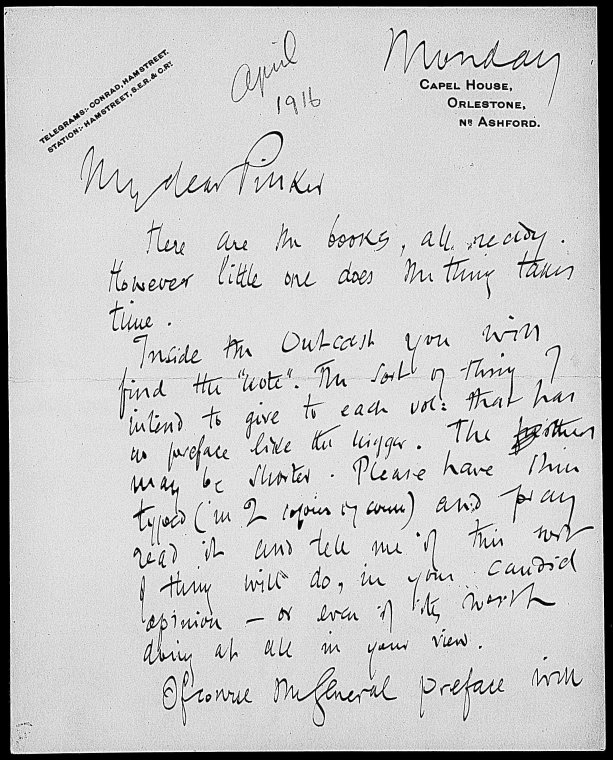 TELEGRAMS:- CONRAD, HAMSTREET.
STATION:- HAMSTREET, S.E.R. & C.RY.
April
1916
Monday
CAPEL HOUSE,
ORLESTONE,
NR ASHFORD.
My dear Pinker
Here are the books, all ready.
However little one does the thing takes
time.
Inside the Outcast you will
find the "Note". The sort of thing I
intend to give to each vol: that has
no preface like the nigger. The
may be shorter. Please have this
typed (in 2 copies of course) and pray
read it and tell me if this sort
of thing will do, in your candid
opinion — or even if its worth
doing at all in your view.
Of course the General preface will